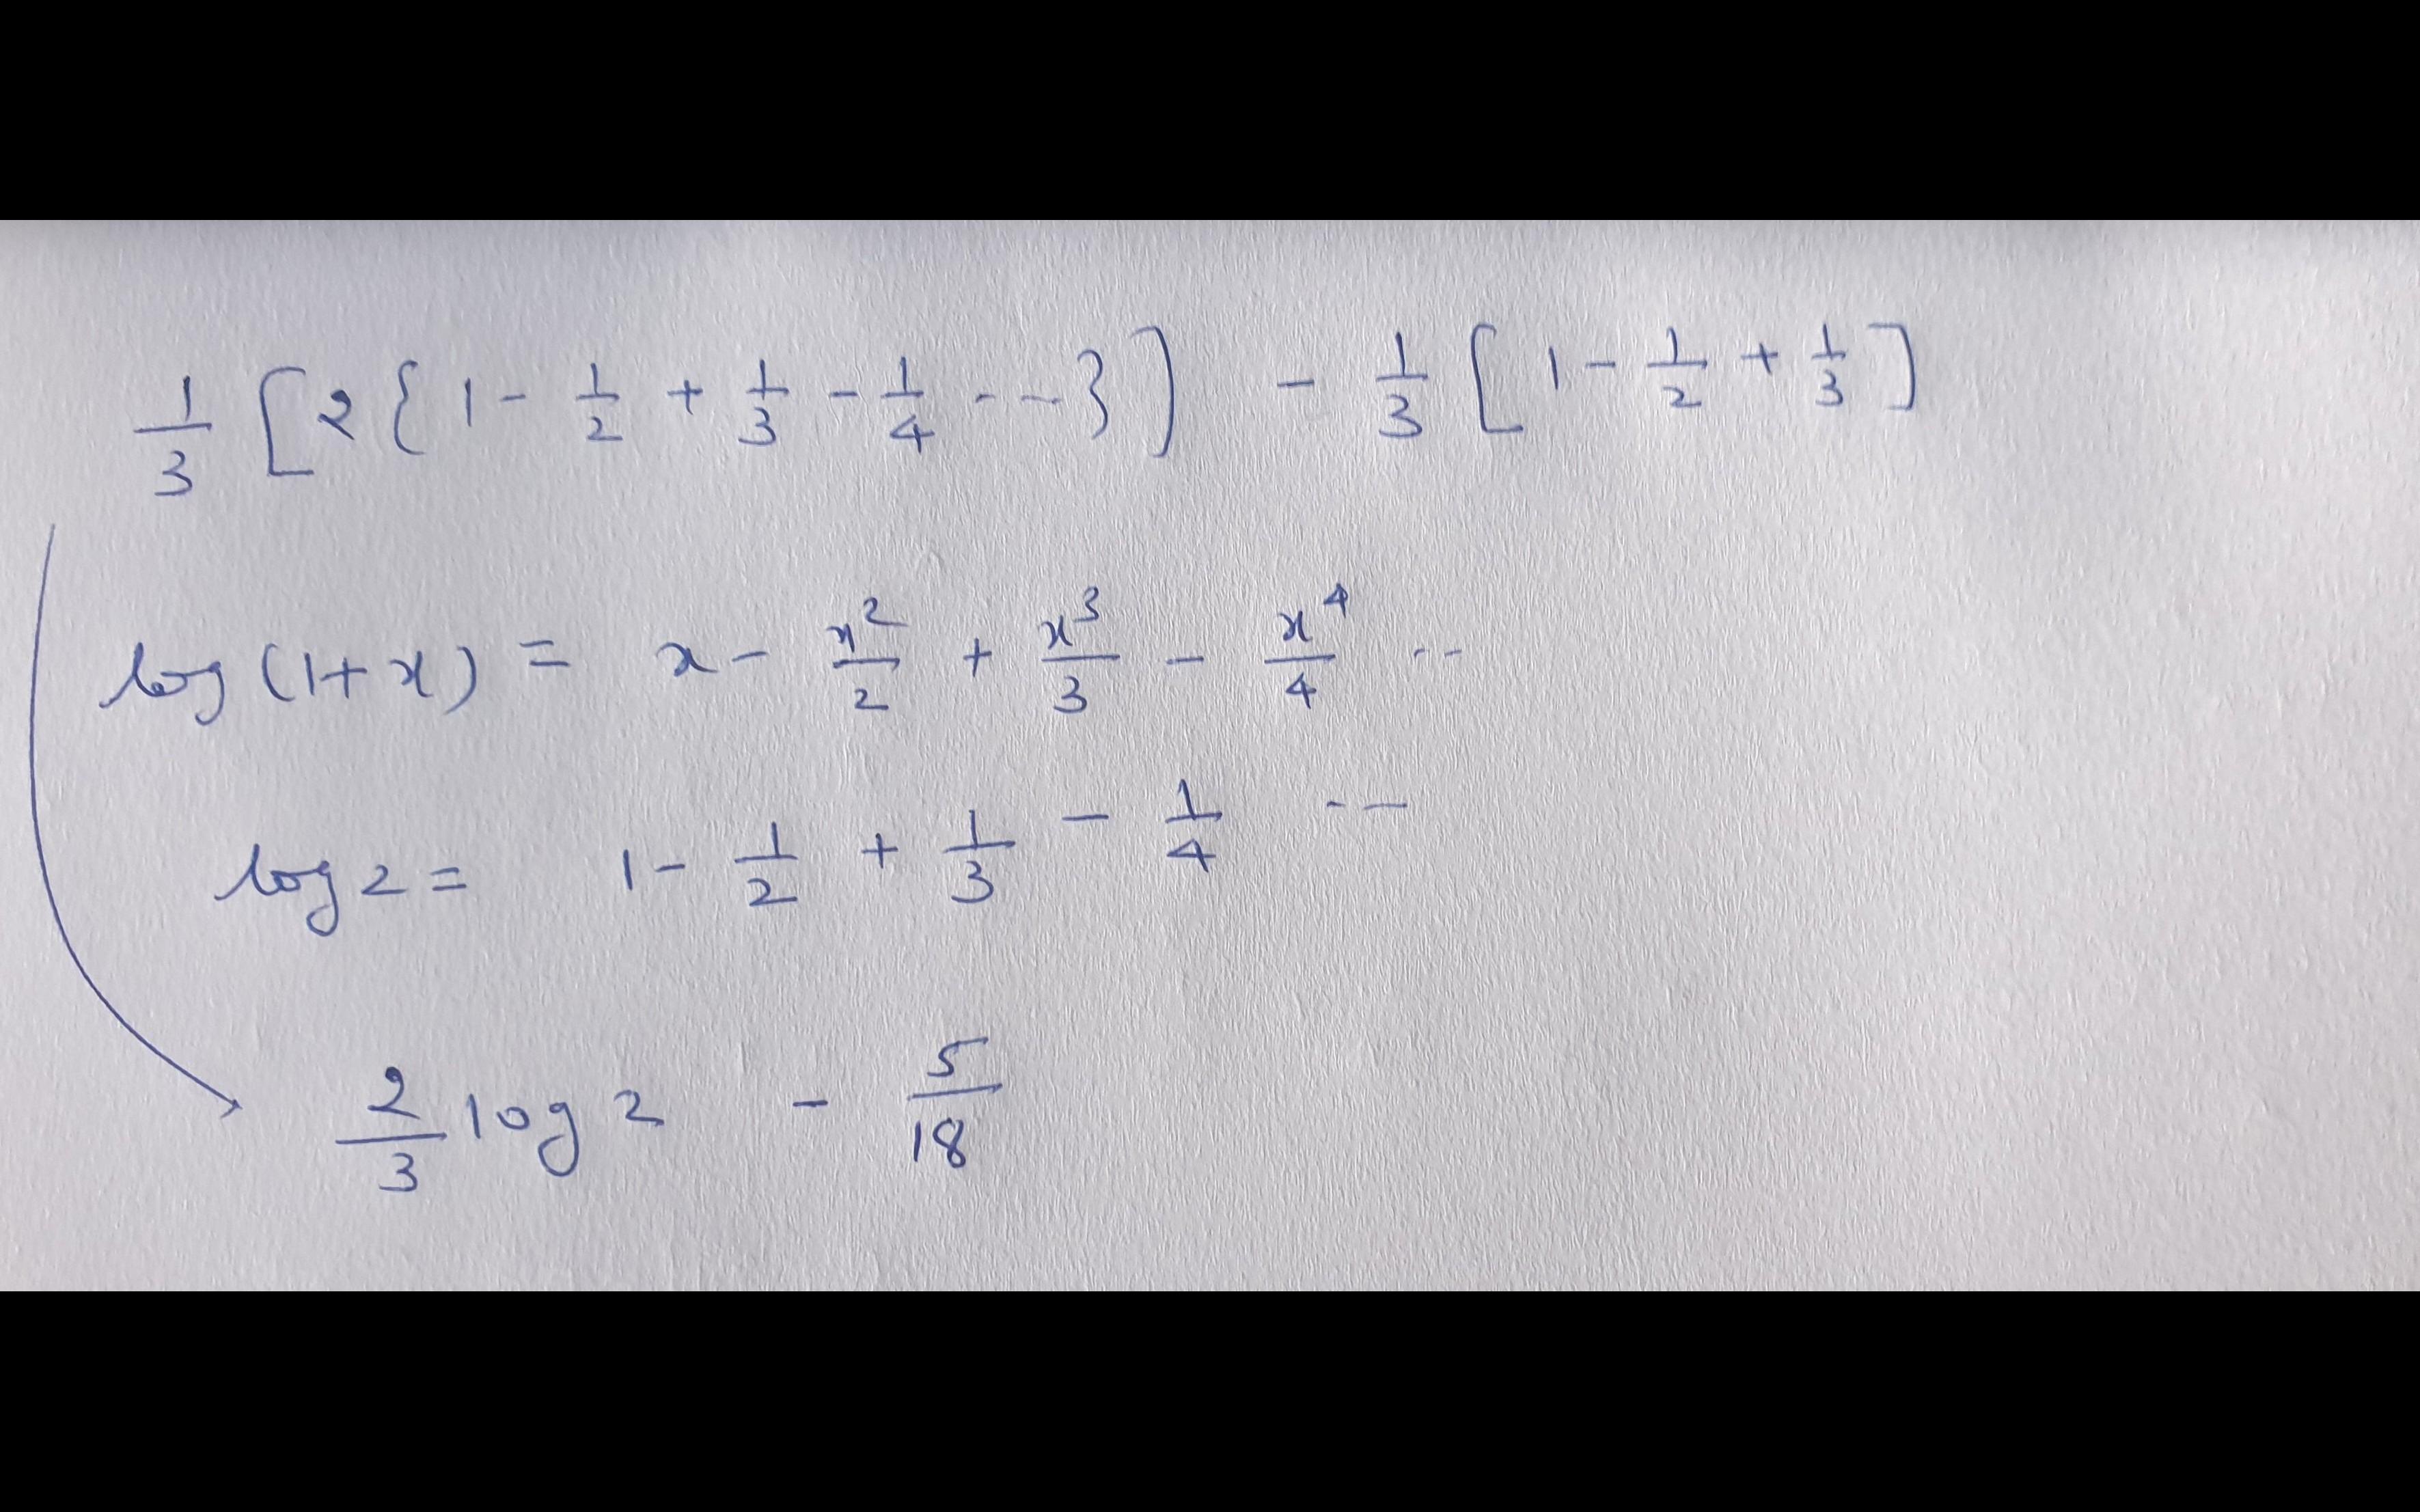 1/3 [2{1 - 1/2 + 1/3 - 1/4 - --}] - 1/3 [1 - 1/2 + 1/3]
log (1+x) = x - x^2/2 + x^3/3 - x^4/4 --
log 2 = 1 - 1/2 + 1/3 - 1/4 --
2/3 log 2 - 5/18